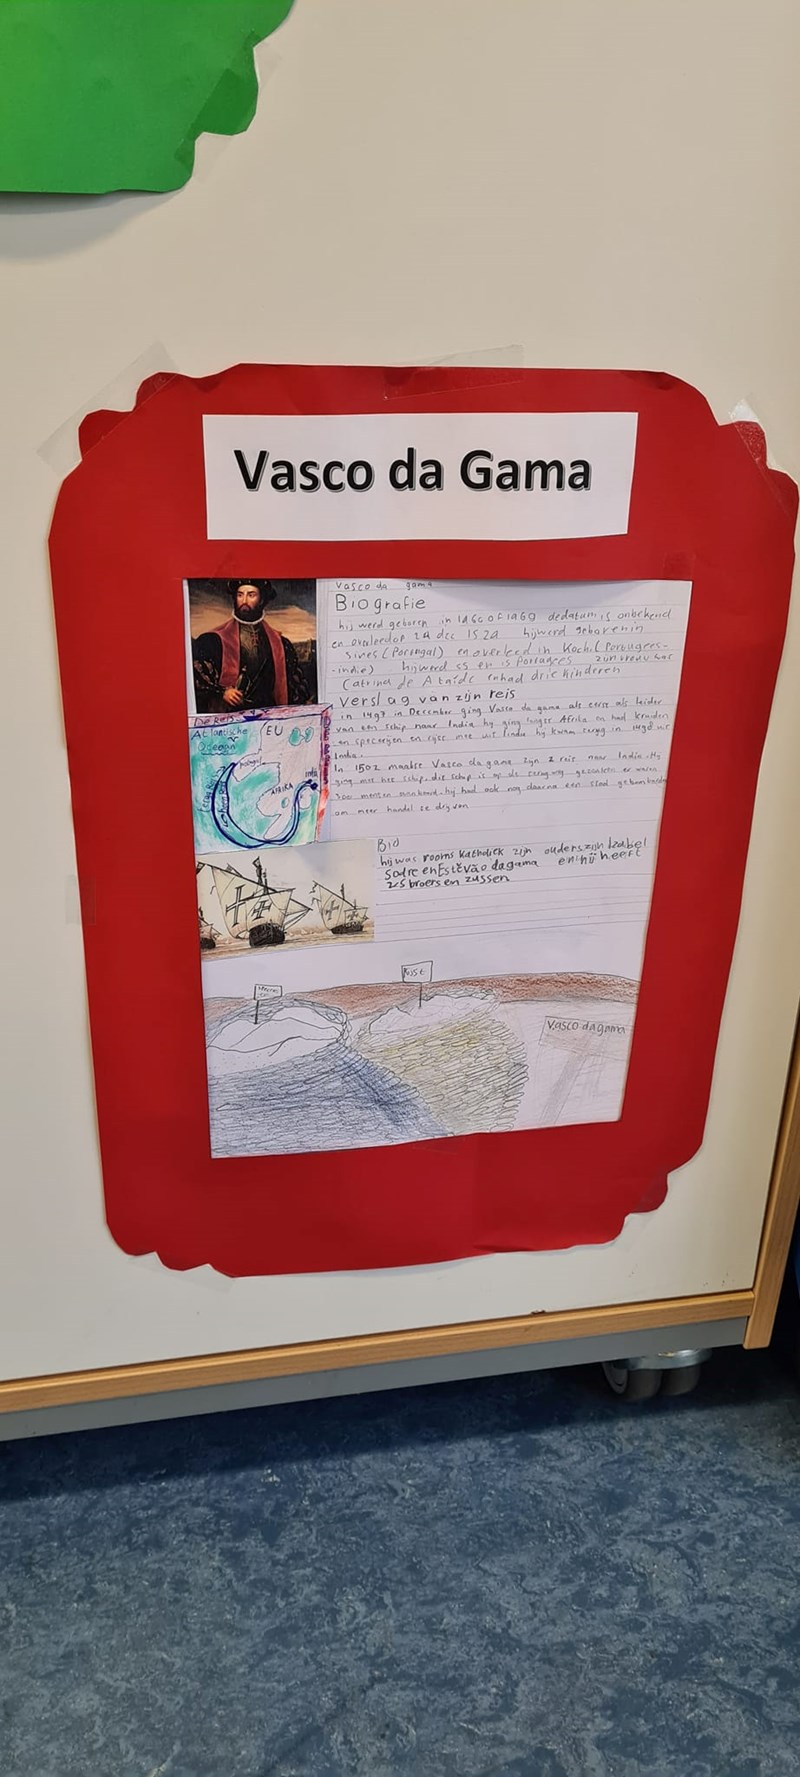 Vasco da Gama
Vasco da gama
Biografie
hij werd geboren in 1460 of 1469 dedatum is onbekend
en overleed op 24 dec 1524 hijwerd geboren in
sines (Portugal) en overleed in Kochi (Portugees-
-indie) hij werd 55 en is Portugees zijn vrouw was
Catrina de Ataíde en had drie kinderen
verslag van zijn reis
in 1497 in December ging Vasco da gama als eerste als leider
van een schip naar India hij ging langs Afrika en had kruiden
en specerijen en rijst mee uit india hij kwam terug in 1499 uit
India.
In 1502 maakte Vasco da gama zijn 2 reis naar India. Hij
ging met het schip. die schip is op de terugweg gezonken er waren
300 mensen aan boord. hij had ook nog daarna een stad gebombardeerd
om meer handel te drijven
De Reis
Atlantische
Oceaan
EU
Portugal
AFRIKA
Indi
Bio
hij was rooms Katholiek zijn ouders zijn Izabel
Sodre en Estêvão da gama en hij heeft
25 broers en zussen
Rijst
Vasco da gama